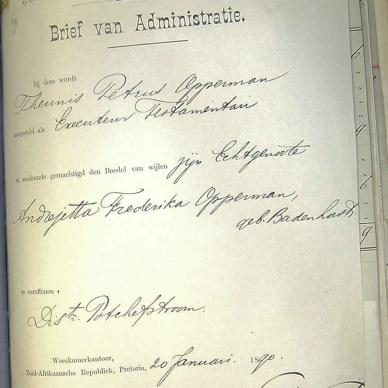 Brief van Administratie.
Bij deze wordt
Theunis Petrus Opperman
aangesteld als Executeur Testamentair
en zodoende gemachtigd den Boedel van wijlen zijn Echtgenoote
Andrejetta Frederika Opperman,
geb. Badenhorst
te vereffenen,
Distr. Potchefstroom.
Weeskamerkantoor,
Zuid-Afrikaansche Republiek, Pretoria, 20 Januari. 1890.